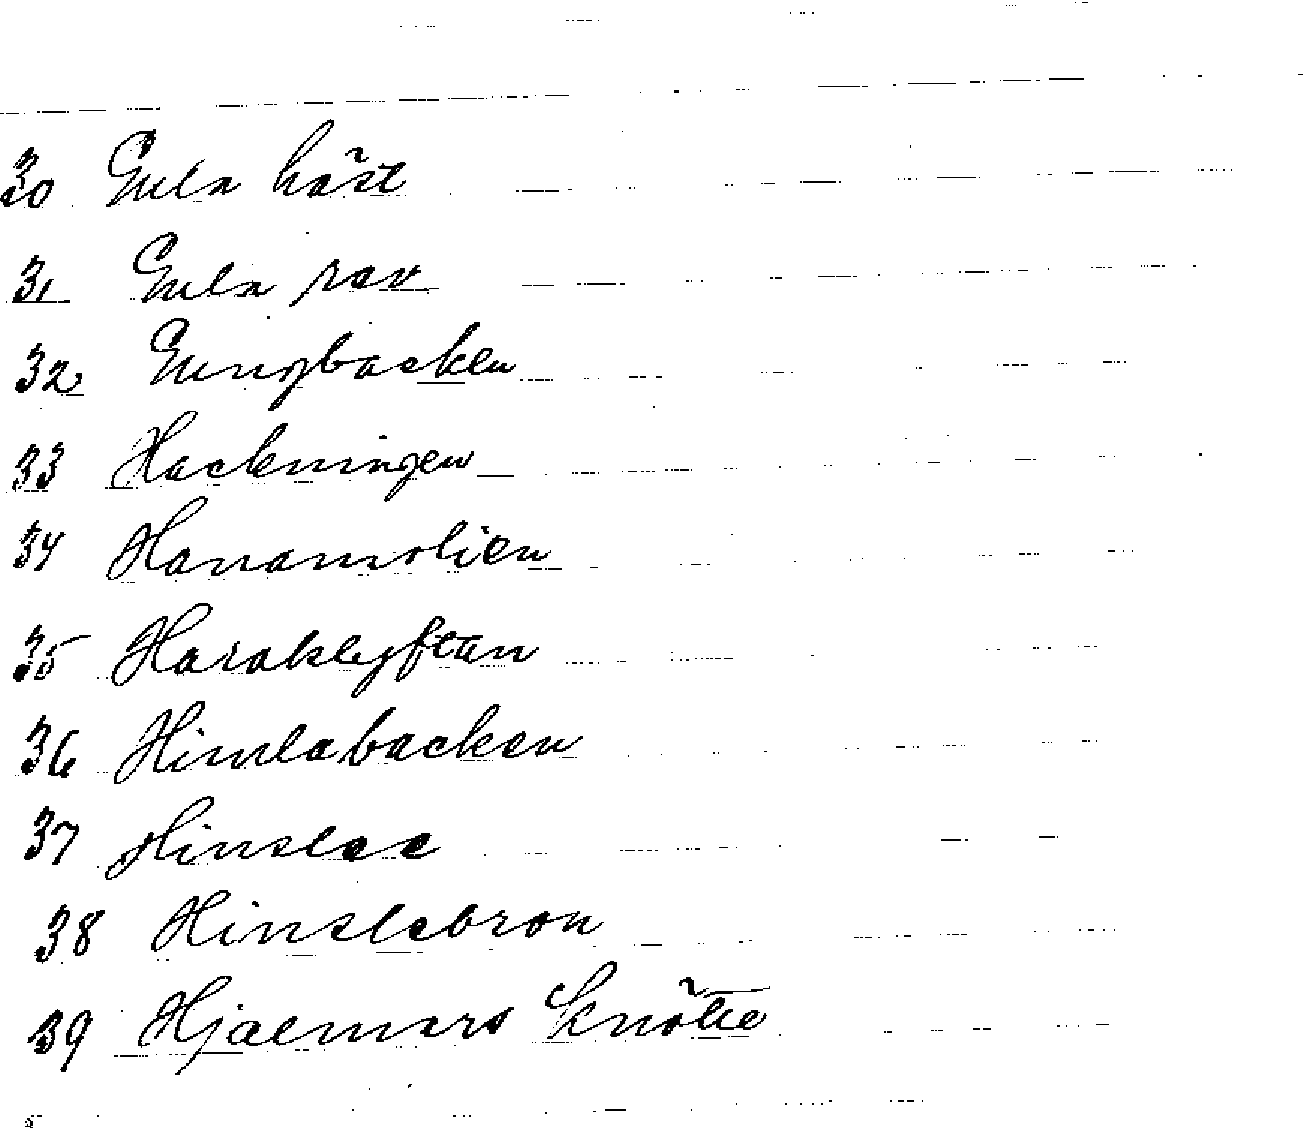 30 Gula häst
31 Gula rav
32 Gungbacken
33 Hackningen
34 Hanamolien
35 Haraklyftan
36 Himlabacken
37 Hinslee
38 Hinslebron
39 Hjalmars Knölie